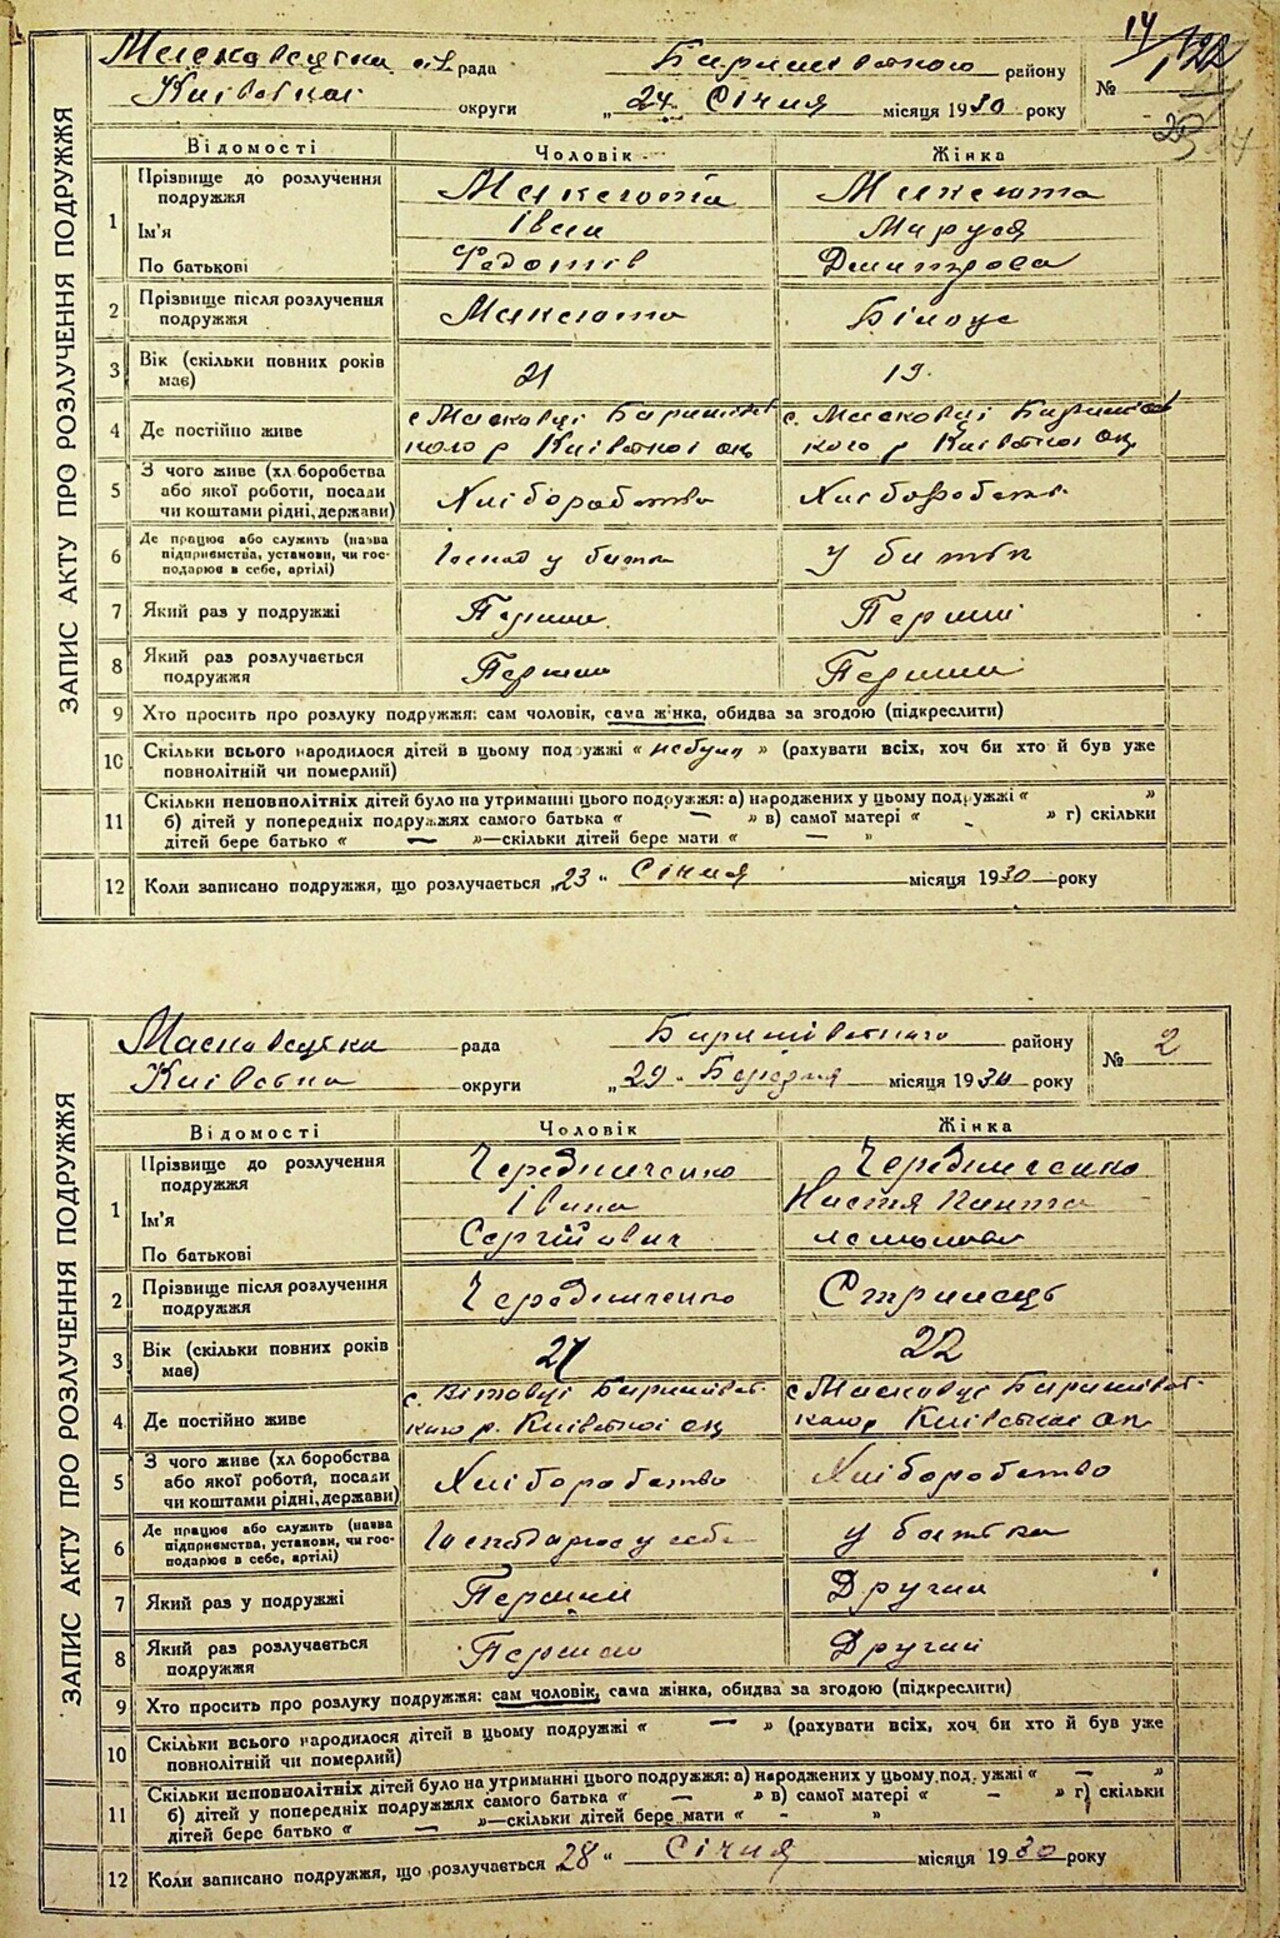 14
122
ЗАПИС АКТУ ПРО РОЗЛУЧЕННЯ ПОДРУЖЖЯ
Масковецька рада Баришівського району № 1
Київської округи „24" Січня місяця 1930 року
Відомості Чоловік Жінка
1 Прізвище до розлучення подружжя Максюта Максюта
Ім'я Іван Маруся
По батькові Федотів Дмитрова
2 Прізвище після розлучення подружжя Максюта Білоус
3 Вік (скільки повних років має) 21 19.
4 Де постійно живе с Масковці Баришівс с. Масковці Баришівс
кого р Київської ок. кого р Київської ок.
5 З чого живе (хлiборобства Хліборобство Хлібороб
або якої роботи, посади
чи коштами рідні, держави)
6 Де працює або служить (назва Господ у батька У батьк
підприємства, установи, чи гос-
подарює в себе, артілі)
7 Який раз у подружжі Перший Перший
8 Який раз розлучається подружжя Перший Перший
9 Хто просить про розлуку подружжя: сам чоловік, сама жінка, обидва за згодою (підкреслити)
10 Скільки всього народилося дітей в цьому подружжі « небуло » (рахувати всіх, хоч би хто й був уже
повнолітній чи померлий)
11 Скільки неповнолітніх дітей було на утриманні цього подружжя: а) народжених у цьому подружжі « »
б) дітей у попередніх подружжях самого батька « — » в) самої матері « - » г) скільки
дітей бере батько « — »—скільки дітей бере мати « — »
12 Коли записано подружжя, що розлучається „23" Січня місяця 1930 року
ЗАПИС АКТУ ПРО РОЗЛУЧЕННЯ ПОДРУЖЖЯ
Масковецька рада Баришівського району № 2
Київська округи „29" Березня місяця 1930 року
Відомості Чоловік Жінка
1 Прізвище до розлучення подружжя Чередниченко Чередниченко
Ім'я Івана Настя Панте
По батькові Сергійович леймонов
2 Прізвище після розлучення подружжя Чередниченко Стрілець
3 Вік (скільки повних років має) 21 22
4 Де постійно живе с. Вітовці Баришівс с Масковці Баришівс
кого р. Київської ок кого р Київської ок.
5 З чого живе (хлiборобства Хліборобство Хліборобство
або якої роботи, посади
чи коштами рідні, держави)
6 Де працює або служить (назва Господарює у себе у батька
підприємства, установи, чи гос-
подарює в себе, артілі)
7 Який раз у подружжі Перший Другий
8 Який раз розлучається подружжя Перший Другий
9 Хто просить про розлуку подружжя: сам чоловік, сама жінка, обидва за згодою (підкреслити)
10 Скільки всього народилося дітей в цьому подружжі « — » (рахувати всіх, хоч би хто й був уже
повнолітній чи померлий)
11 Скільки неповнолітніх дітей було на утриманні цього подружжя: а) народжених у цьому подружжі « — »
б) дітей у попередніх подружжях самого батька « — » в) самої матері « - » г) скільки
дітей бере батько « — »—скільки дітей бере мати « - »
12 Коли записано подружжя, що розлучається „28" Січня місяця 1930 року